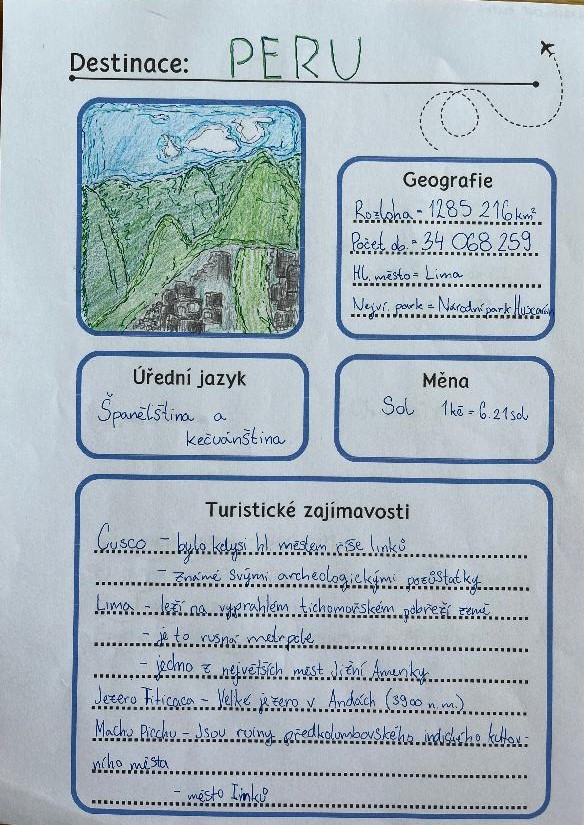 Destinace: PERU
Geografie
Rozloha = 1285 216 km²
Počet ob. = 34 068 259
Hl. město = Lima
Nejví. park = Národní park Huscarán
Úřední jazyk
Španělština a
kečuánština
Měna
Sol 1kč = 6.21 sol
Turistické zajímavosti
Cusco - bylo kdysi hl městem říše Inků
- známé svými archeologickými pozůstatky
Lima - leží na vyprahlém tichomořském pobřeží země
- je to rusná metrpole
- jedno z největších měst Jižní Ameriky
Jezero Titicaca - Velké jezero v Andách (3900 n.m.)
Machu Picchu - Jsou ruiny předkolumbovského indického kultov-
ního města
- město Inků